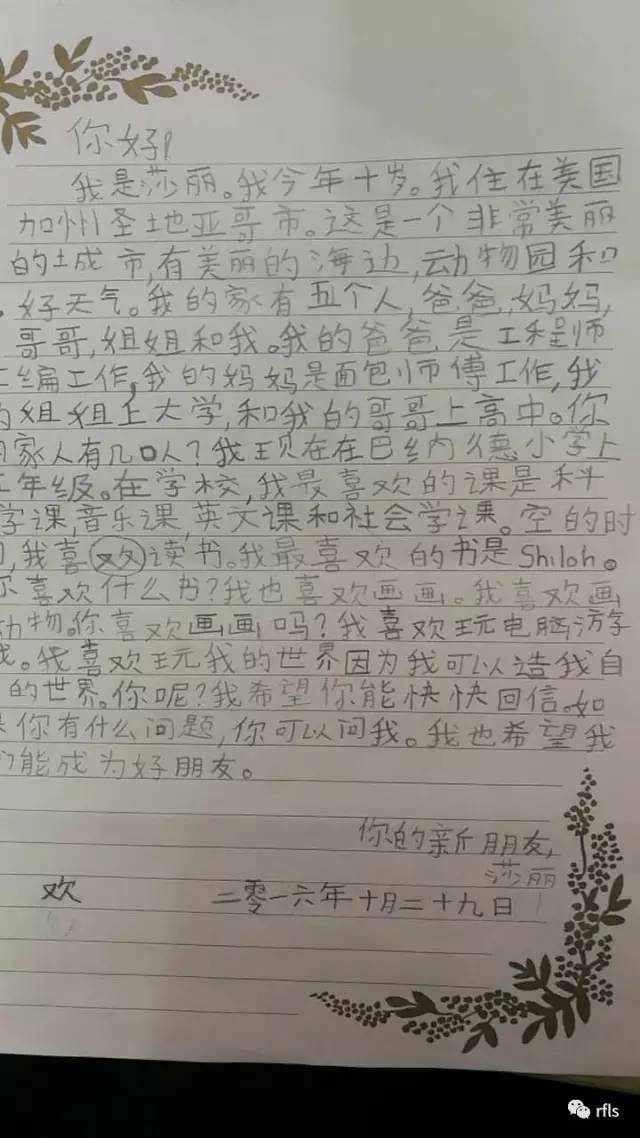 你好!
我是莎丽。我今年十岁。我住在美国
加州圣地亚哥市。这是一个非常美丽
的城市,有美丽的海边,动物园和
好天气。我的家有五个人,爸爸,妈妈,
哥哥,姐姐和我。我的爸爸是工程师
编工作,我的妈妈是面包师傅工作,我
姐姐上大学,和我的哥哥上高中。你
家人有几口人?我现在在巴纳德小学上
年级。在学校,我最喜欢的课是科
学课,音乐课,英文课和社会学课。空的时
,我喜欢读书。我最喜欢的书是Shiloh。
你喜欢什么书?我也喜欢画画。我喜欢画
动物。你喜欢画画吗?我喜欢玩电脑游
戏。我喜欢玩我的世界因为我可以造我自
的世界。你呢?我希望你能快快回信。如
果你有什么问题,你可以问我。我也希望我
们能成为好朋友。
你的新朋友,
莎丽
欢
二零一六年十月二十九日
rfls